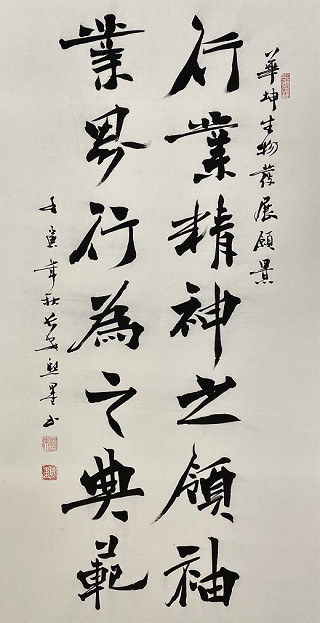 華坤生物發展願景
行業精神之領袖
業界行為之典範
壬寅年秋长安熙墨书